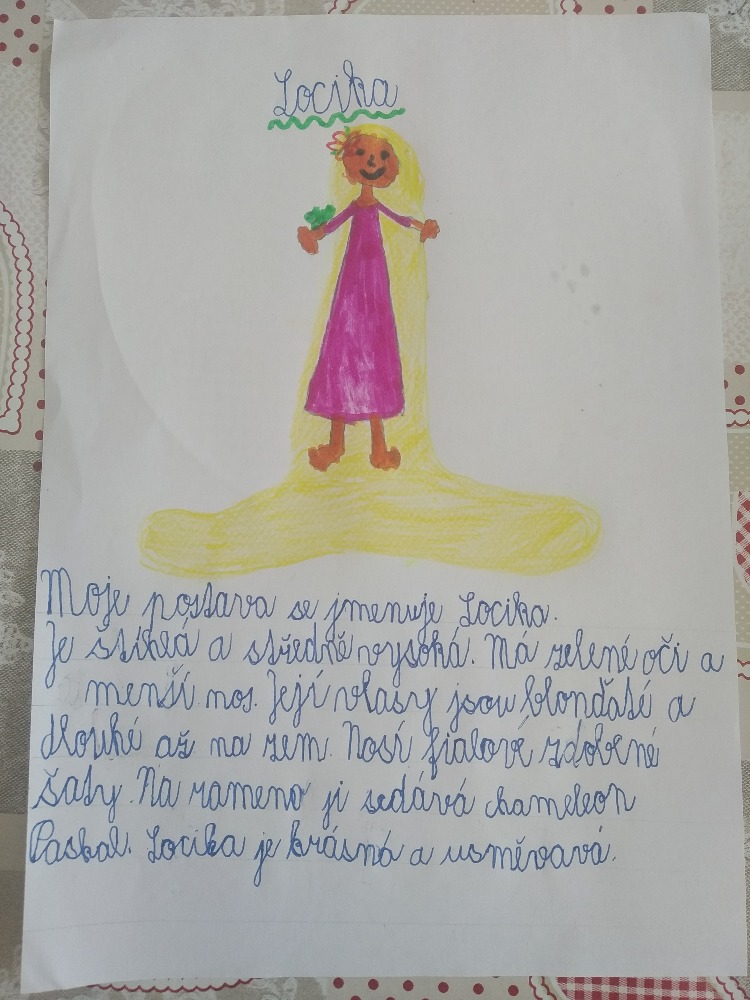 Locika
Moje postava se jmenuje Locika.
Je štíhlá a středně vysoká. Má zelené oči a
menší nos. Její vlasy jsou blonďaté a
dlouhé až na zem. Nosí fialové zdobené
šaty. Na rameno ji sedává chameleon
Paskal. Locika je krásná a usměvavá.